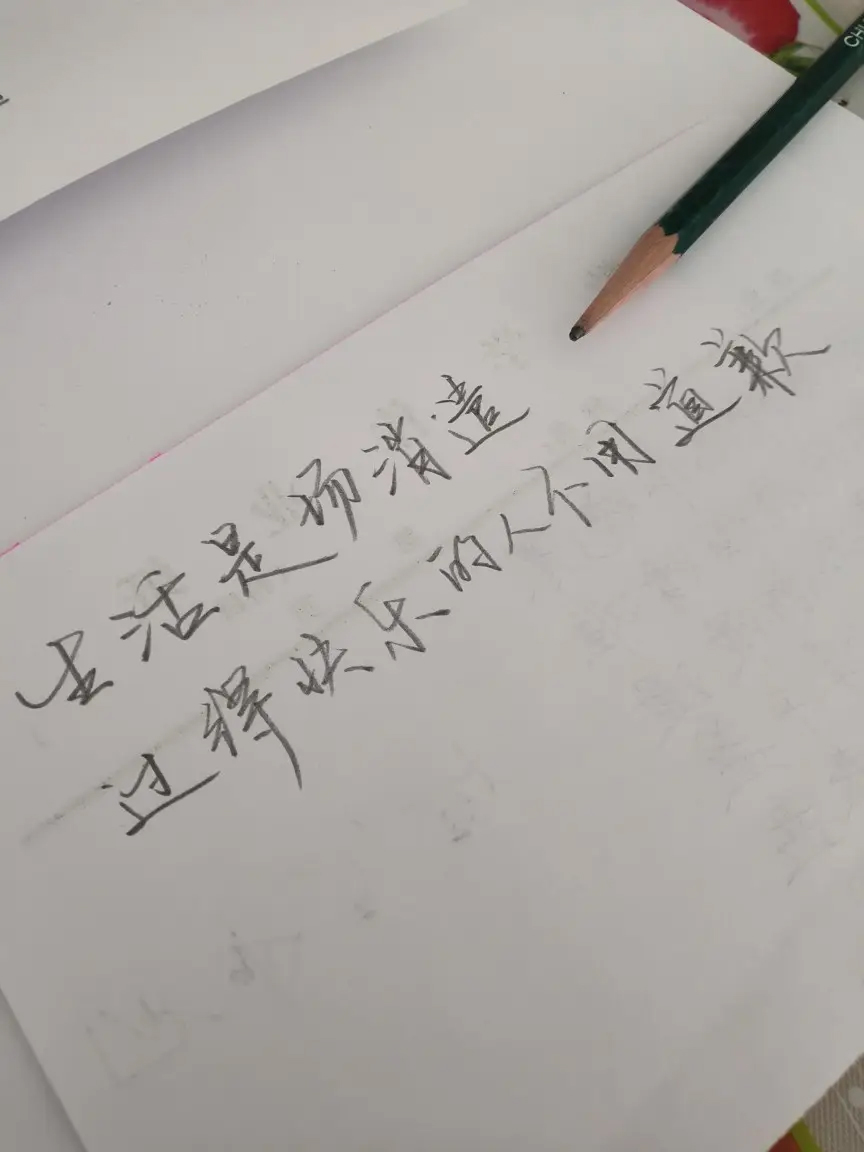 生活是场消造
过得快乐的人不用道歉
CH